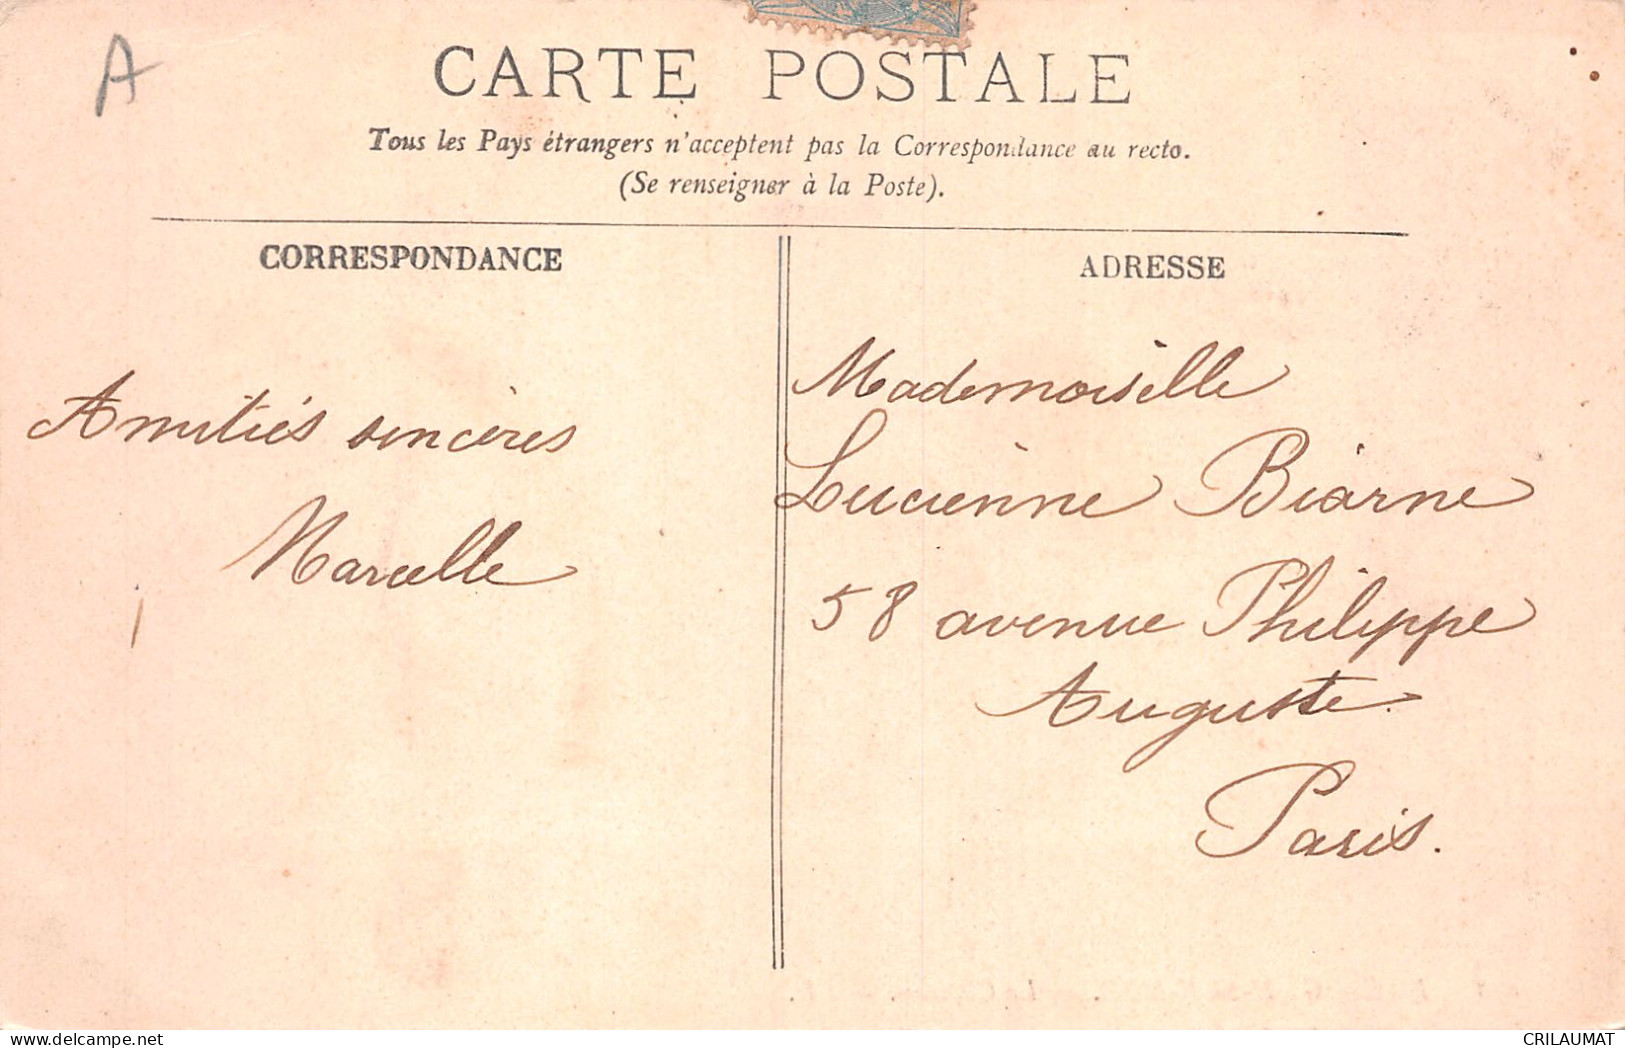 A
CARTE POSTALE
Tous les Pays étrangers n'acceptent pas la Correspondance au recto.
(Se renseigner à la Poste).
CORRESPONDANCE
Amitiés sincères
Marcelle
ADRESSE
Mademoiselle
Lucienne Biarne
58 avenue Philippe
Auguste.
Paris.
delcampe.net
CRILAUMAT